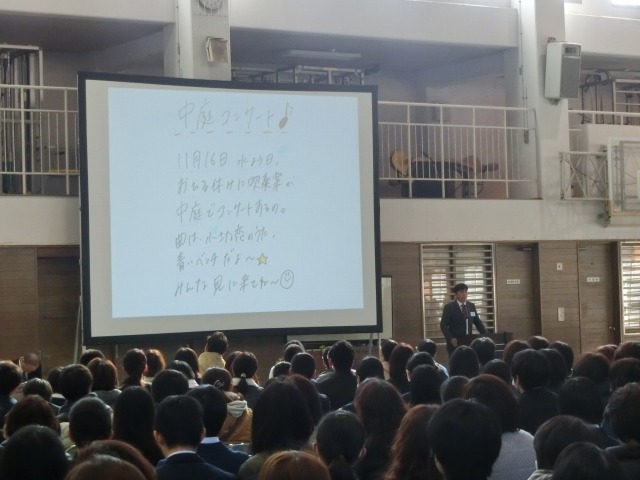 中庭コンサート♪
11月16日 水よう日、
おひる休けに吹奏楽が
中庭でコンサートあるの。
曲は、小さな恋のうた、
青いベンチだよ〜☆
みんな見に来てね〜☺